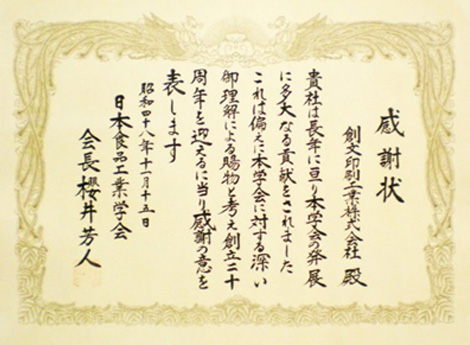 感謝状
創文印刷工業株式会社 殿
貴社は長年に亘り本学会の発展
に多大なる貢献をされました
これは偏えに本学会に対する深い
御理解による賜物と考え創立二十
周年を迎えるに当り感謝の意を
表します
昭和四十八年十一月十五日
日本食品工業学会
会長櫻井芳人